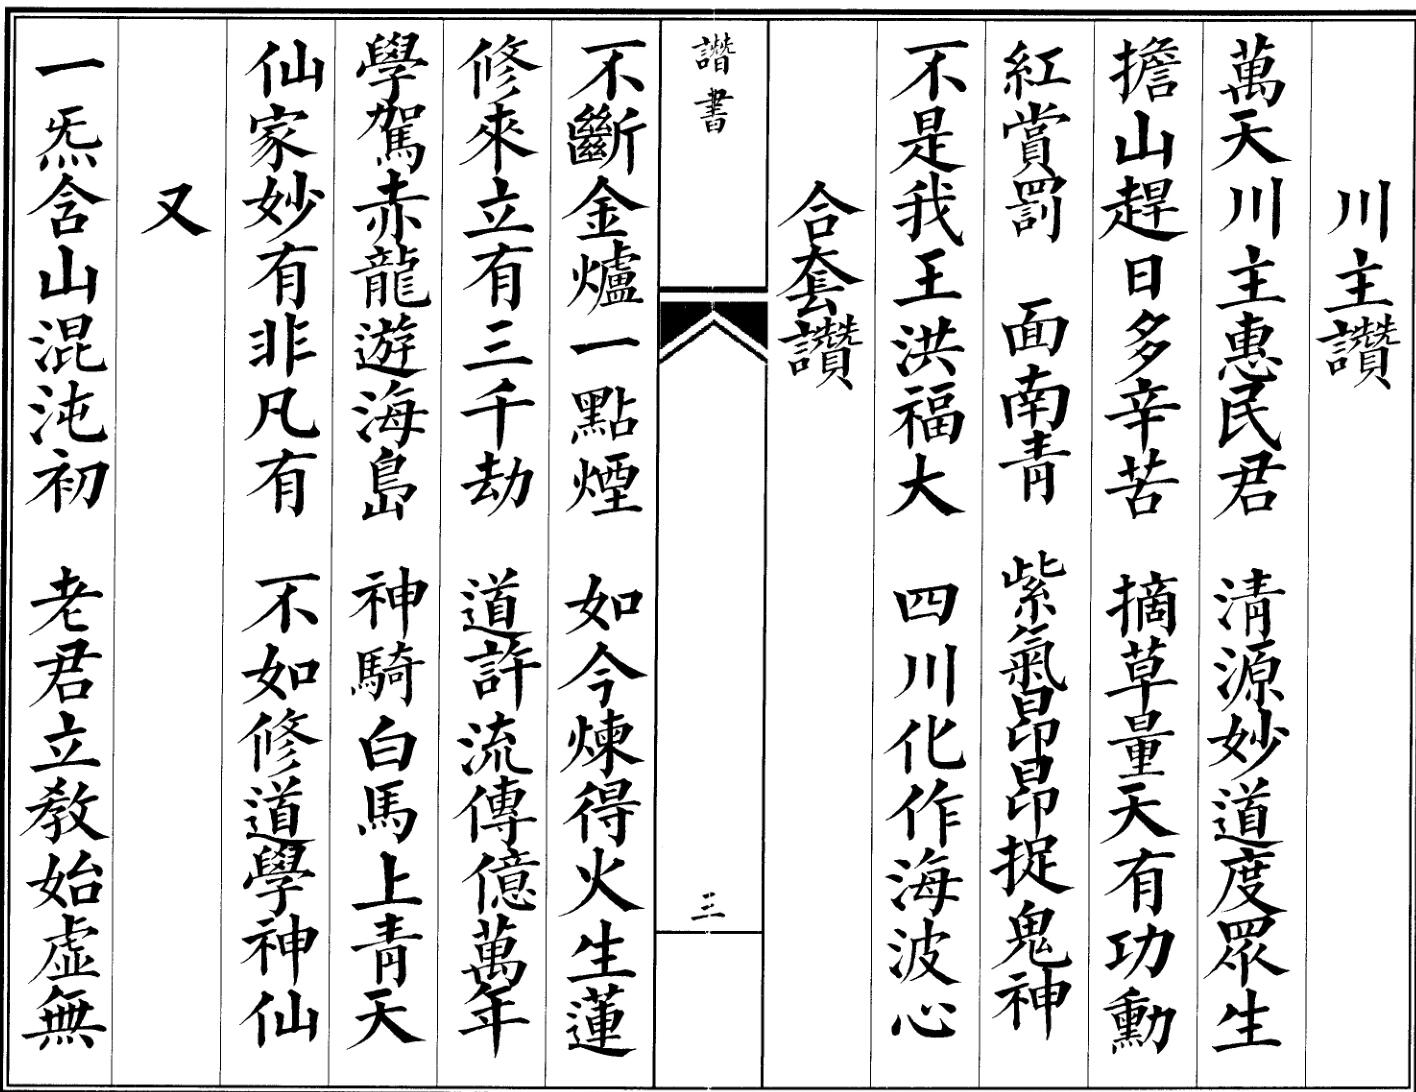 川主讚
萬天川主惠民君　清源妙道度眾生
擔山趕日多辛苦　摘草量天有功勳
紅賞罰　面南青　紫氣昂昂捉鬼神
不是我王洪福大　四川化作海波心
合套讚
諧書
三
不斷金爐一點煙　如今煉得火生蓮
修來立有三千劫　道許流傳億萬年
學駕赤龍遊海島　神騎白馬上青天
仙家妙有非凡有　不如修道學神仙
又
一炁含山混沌初　老君立教始虛無